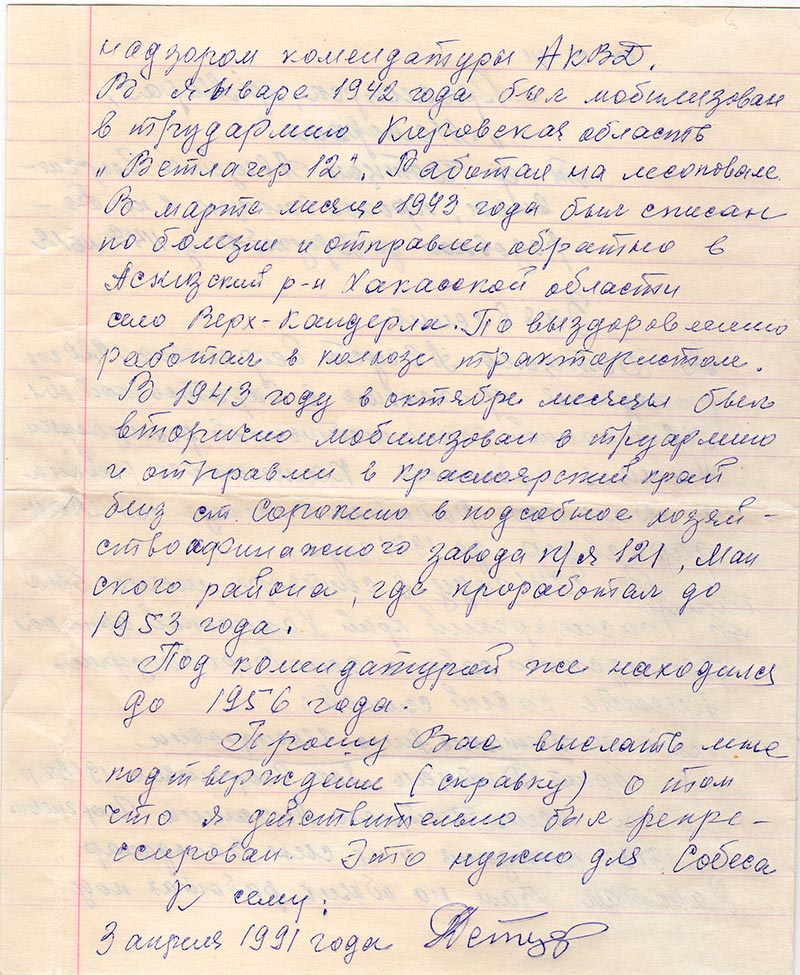 надзором комендатуры АКВД.
В январе 1942 года был мобилизован
в трудармию Кировская область
„Ветлагер 12". Работал на лесоповале
В марте месяце 1943 года был списан
по болезни и отправлен обратно в
Аскизский р-н Хакасской области
село Верх-Кандерла. По выздоровлению
работал в колхозе трактористом.
В 1943 году в октябре месяцы был
вторично мобилизован в труармию
и отправлен в Красноярский край
близ ст. Сорокино в подсобное хозяй-
ство афинажного завода п/я 121, Ман
ского района, где проработал до
1953 года.
Под комендатурой же находился
до 1956 года.
Прошу Вас выслать мне
подтверждение (справку) о том
что я действительно был репре-
ссирован. Это нужно для Собеса
К сему:
3 апреля 1991 года